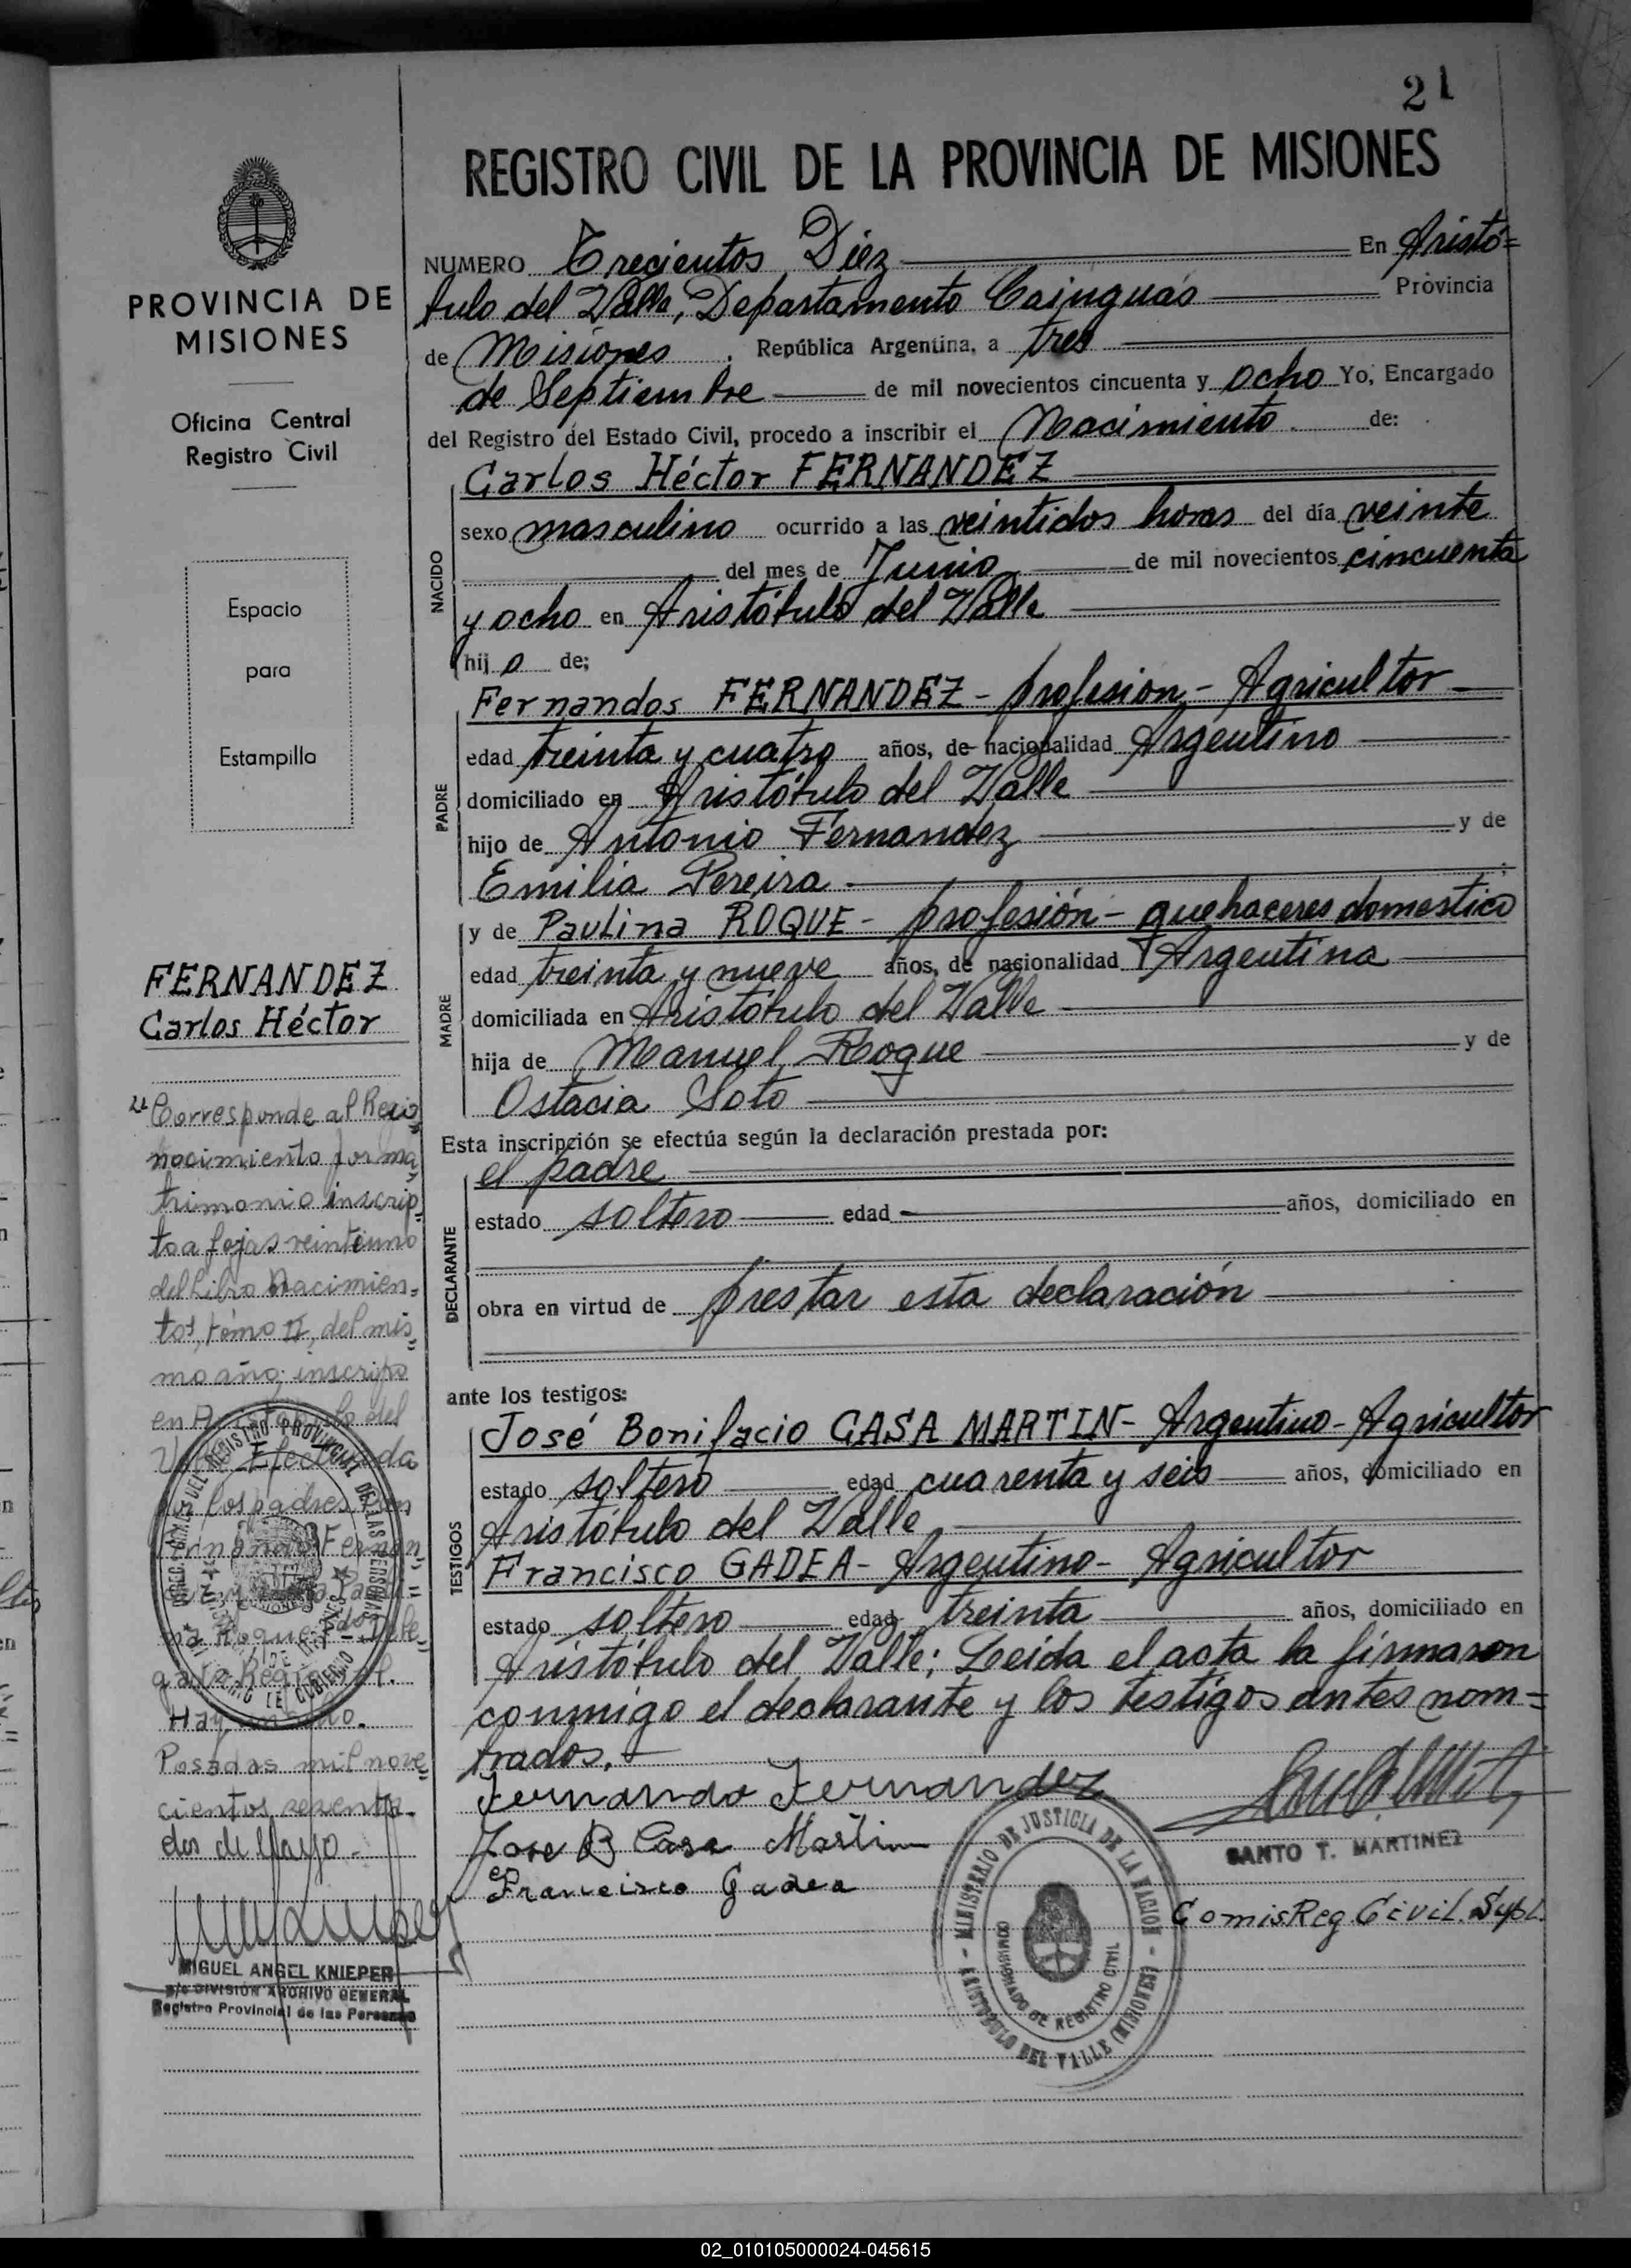 21
REGISTRO CIVIL DE LA PROVINCIA DE MISIONES
NUMERO Trecientos Diez En Aristó=
tulo del Valle, Departamento Cainguás Provincia
de Misiones, República Argentina, a tres
de Septiembre de mil novecientos cincuenta y ocho Yo, Encargado
del Registro del Estado Civil, procedo a inscribir el Nacimiento de:
Carlos Héctor FERNANDEZ
NACIDO
sexo masculino ocurrido a las veintidos horas del día veinte
del mes de Junio de mil novecientos cincuenta
y ocho en Aristóbulo del Valle
hijo de;
PADRE
Fernandos FERNANDEZ - profesion - Agricultor
edad treinta y cuatro años, de nacionalidad Argentino
domiciliado en Aristóbulo del Valle
hijo de Antonio Fernandez y de
Emilia Pereira
MADRE
y de Paulina ROQUE - profesión - quehaceres domestico
edad treinta y nueve años, de nacionalidad Argentina
domiciliada en Aristóbulo del Valle
hija de Manuel Roque y de
Ostacia Soto
Esta inscripción se efectúa según la declaración prestada por:
el padre
DECLARANTE
estado soltero edad años, domiciliado en
obra en virtud de prestar esta declaración
ante los testigos:
TESTIGOS
José Bonifacio CASA MARTIN - Argentino - Agricultor
estado soltero edad cuarenta y seis años, domiciliado en
Aristóbulo del Valle
Francisco GADEA - Argentino - Agricultor
estado soltero edad treinta años, domiciliado en
Aristóbulo del Valle; Leída el acta la firmaron
conmigo el declarante y los testigos antes nom=
brados.
Fernando Fernandez
Jose B Casa Martin
Francisco Gadea
SANTO T. MARTINEZ
Comis Reg Civil. Supl.
MINISTERIO DE JUSTICIA DE LA NACION
COMISIONADO DE REGISTRO CIVIL
ARISTOBULO DEL VALLE (MISIONES)
PROVINCIA DE
MISIONES
Oficina Central
Registro Civil
Espacio
para
Estampilla
FERNANDEZ
Carlos Héctor
Corresponde al Reco
nocimiento por ma
trimonio inscrip
to a fojas veintiuno
del Libro Nacimien=
tos, tomo II, del mis
mo año; inscripto
en Aristobulo del
Valle Efectuada
por los padres
Fernando Fernan
na Roque
Hay un sello.
Posadas mil nove
cientos sesenta
dos de Mayo.-
MIGUEL ANGEL KNIEPER
DIVISIÓN ARCHIVO GENERAL
Registro Provincial de las Personas
02_010105000024-045615